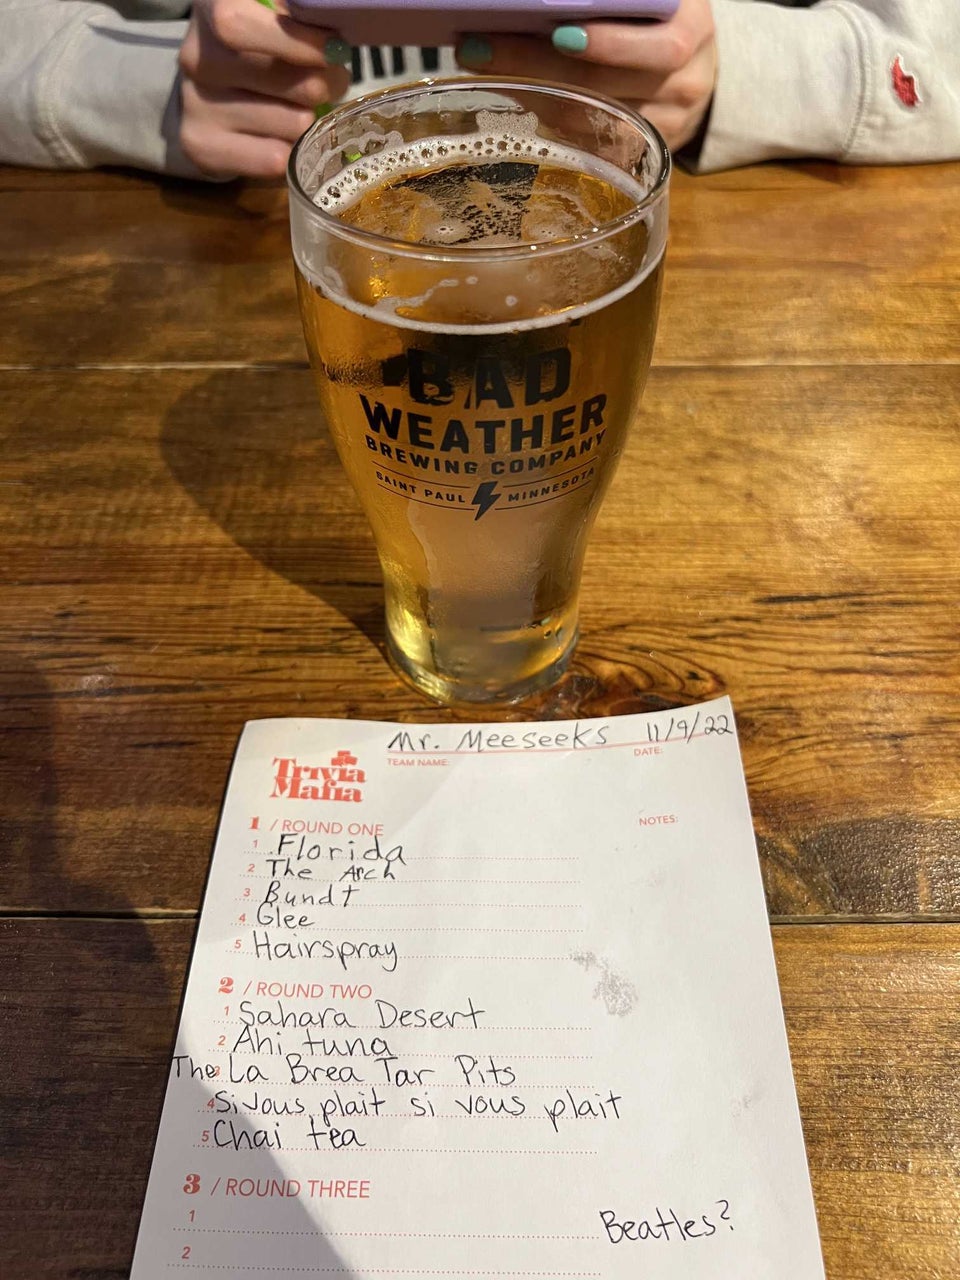 BAD
WEATHER
BREWING COMPANY
SAINT PAUL MINNESOTA
Mr. Meeseeks 11/9/22
TEAM NAME: DATE:
Trivia
Mafia
NOTES:
1 / ROUND ONE
1 Florida
2 The Arch
3 Bundt
4 Glee
5 Hairspray
2 / ROUND TWO
1 Sahara Desert
2 Ahi tuna
The 3 La Brea Tar Pits
4 Si vous plait si vous plait
5 Chai tea
3 / ROUND THREE
1
Beatles?
2